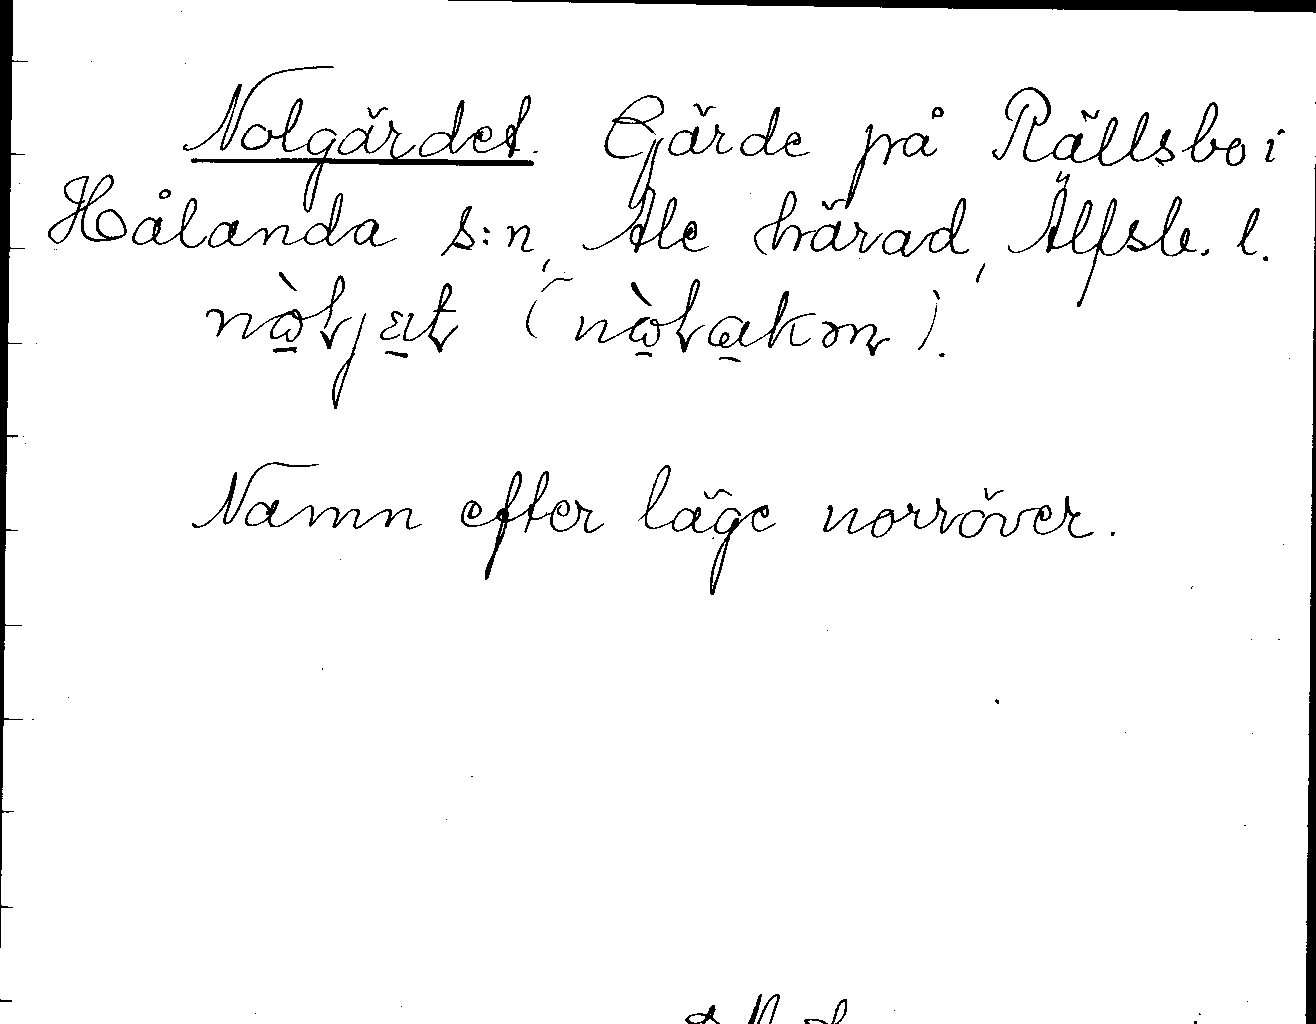 Nolgärdet. Gärde på Rällsbo i
Hålanda s:n, Ale härad, Älfsb. l.
Namn efter läge norröver.